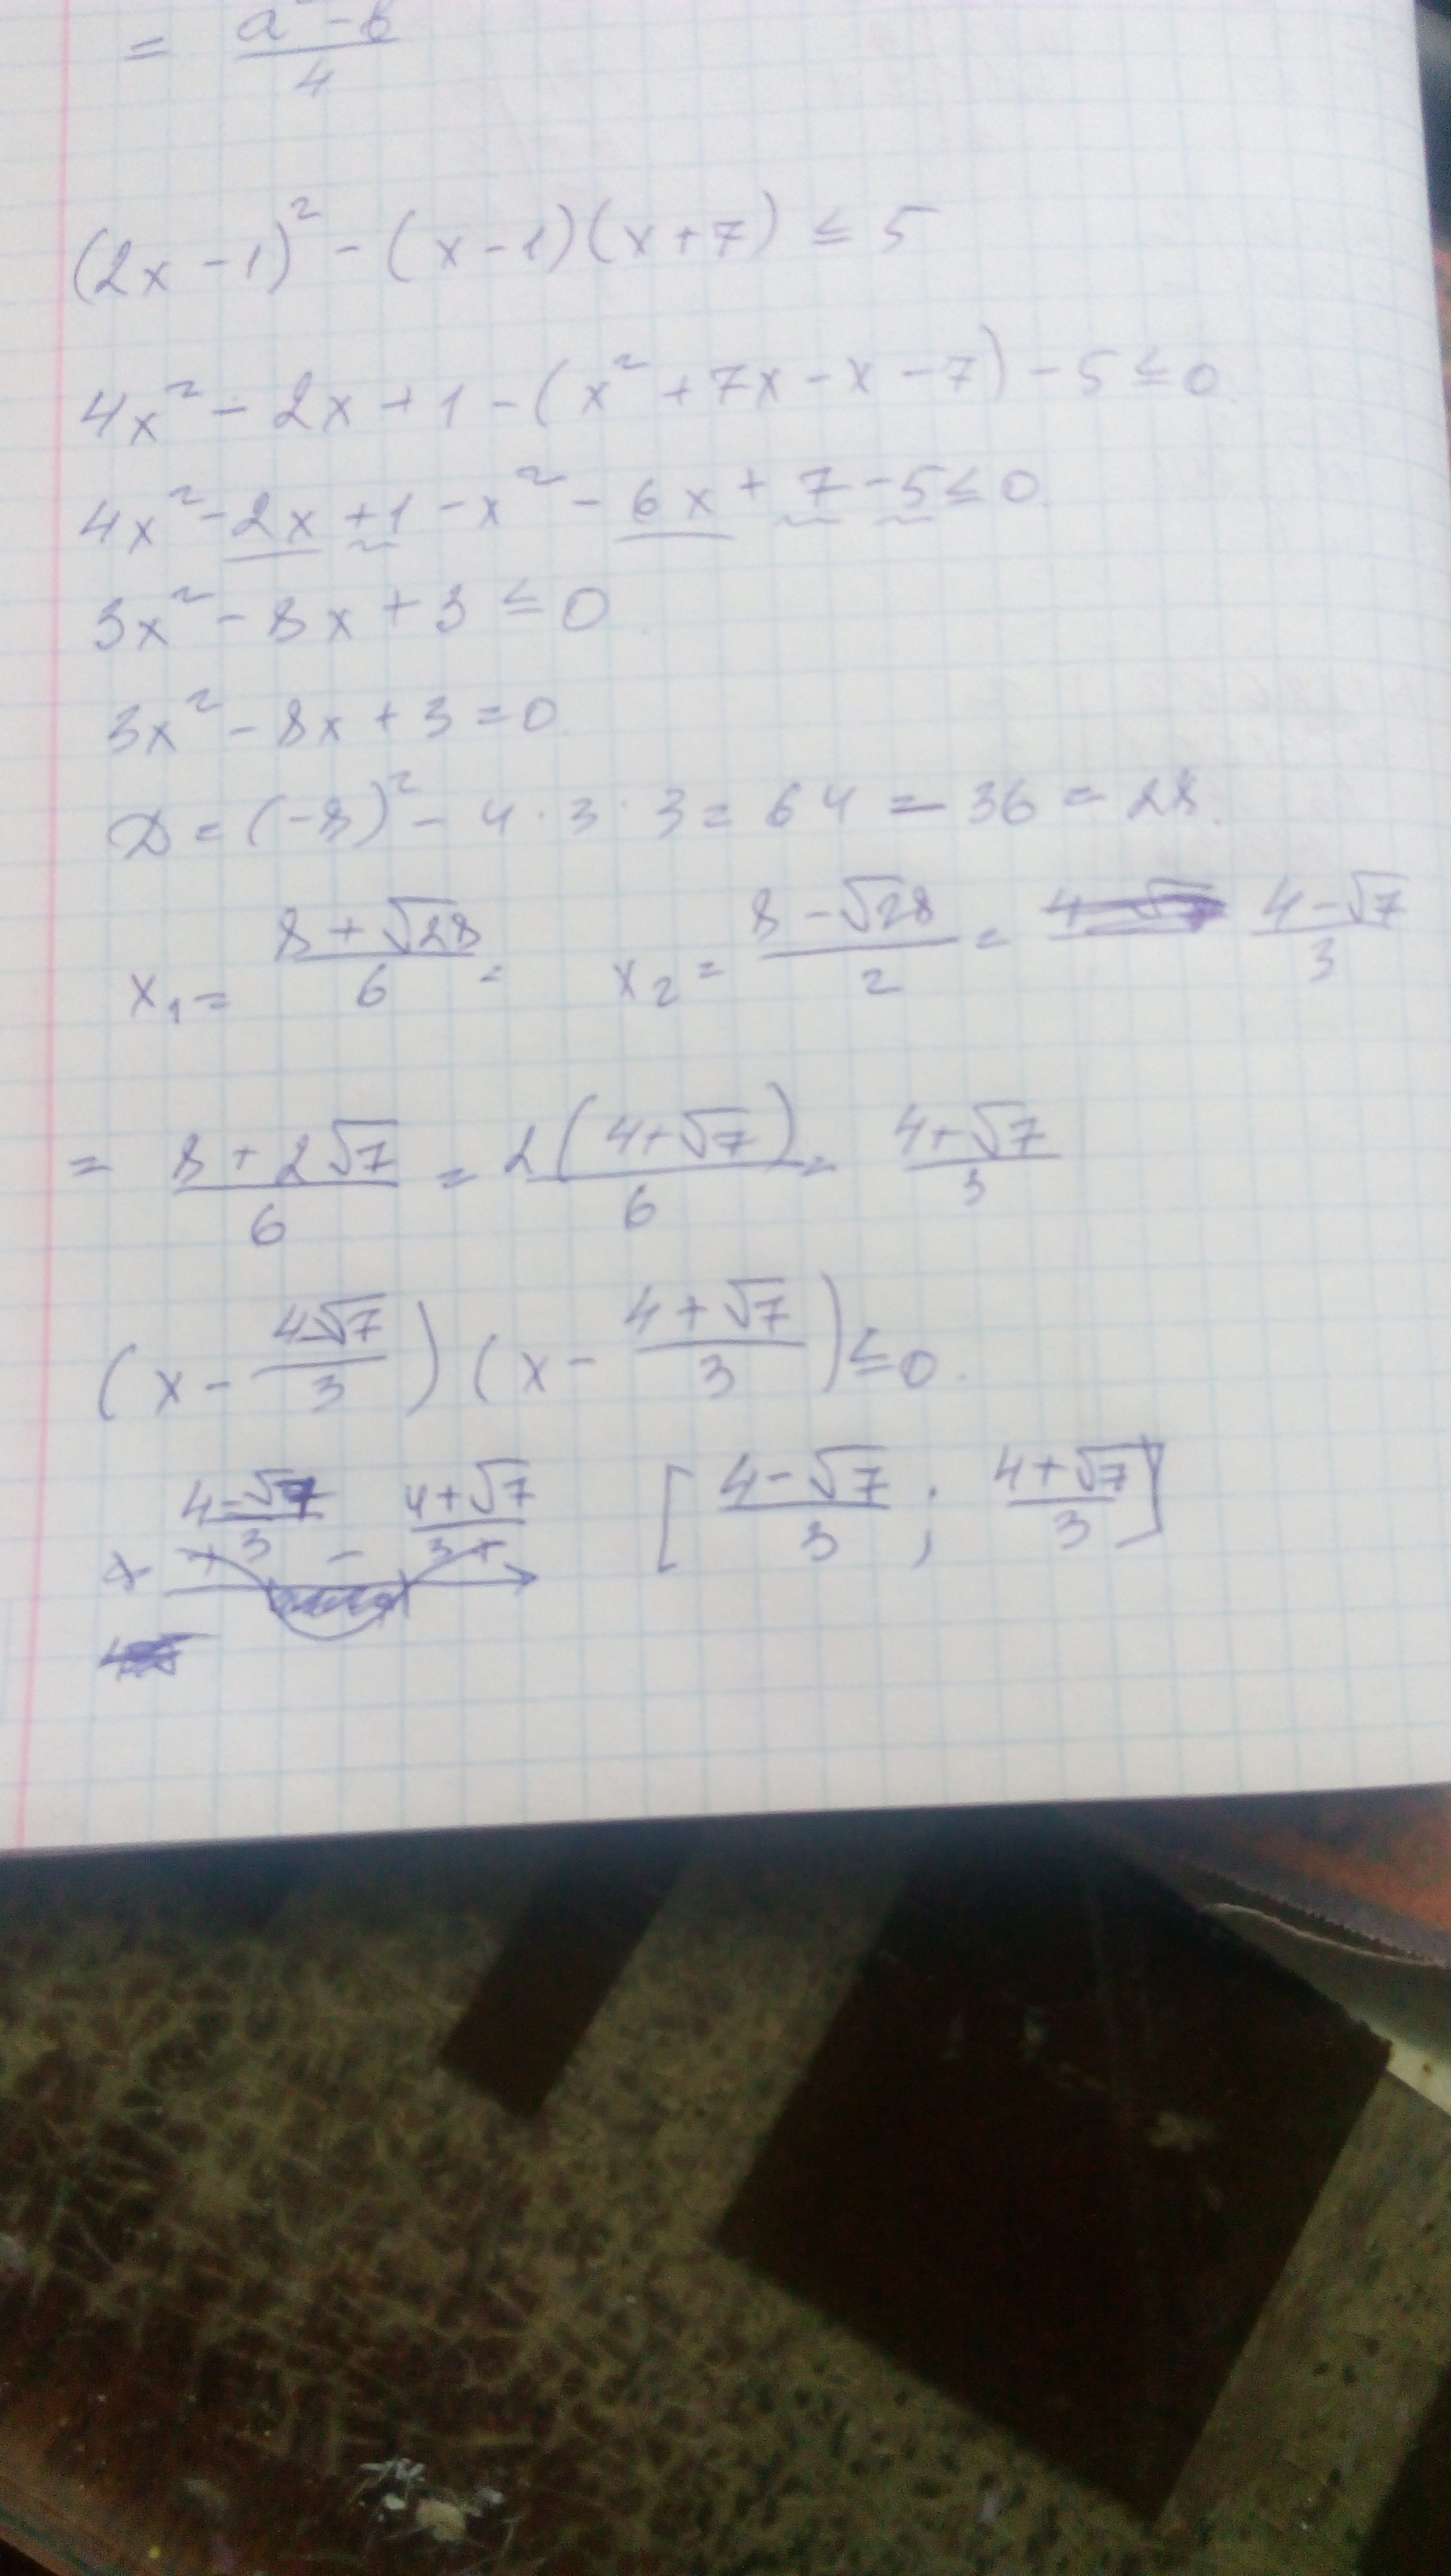 = a² - b / 4
(2x - 1)² - (x - 1)(x + 7) ≤ 5
4x² - 2x + 1 - (x² + 7x - x - 7) - 5 ≤ 0
4x² - 2x + 1 - x² - 6x + 7 - 5 ≤ 0
3x² - 8x + 3 ≤ 0
3x² - 8x + 3 = 0
D = (-8)² - 4 · 3 · 3 = 64 - 36 = 28.
x₁ = 8 + √28 / 6 = x₂ = 8 - √28 / 2 = 4 - √7 / 3
= 8 + 2√7 / 6 = 2(4 + √7) / 6 = 4 + √7 / 3
(x - 4√7 / 3)(x - 4 + √7 / 3) ≤ 0.
4 - √7 / 3 4 + √7 / 3 [4 - √7 / 3 ; 4 + √7 / 3]
+ - +